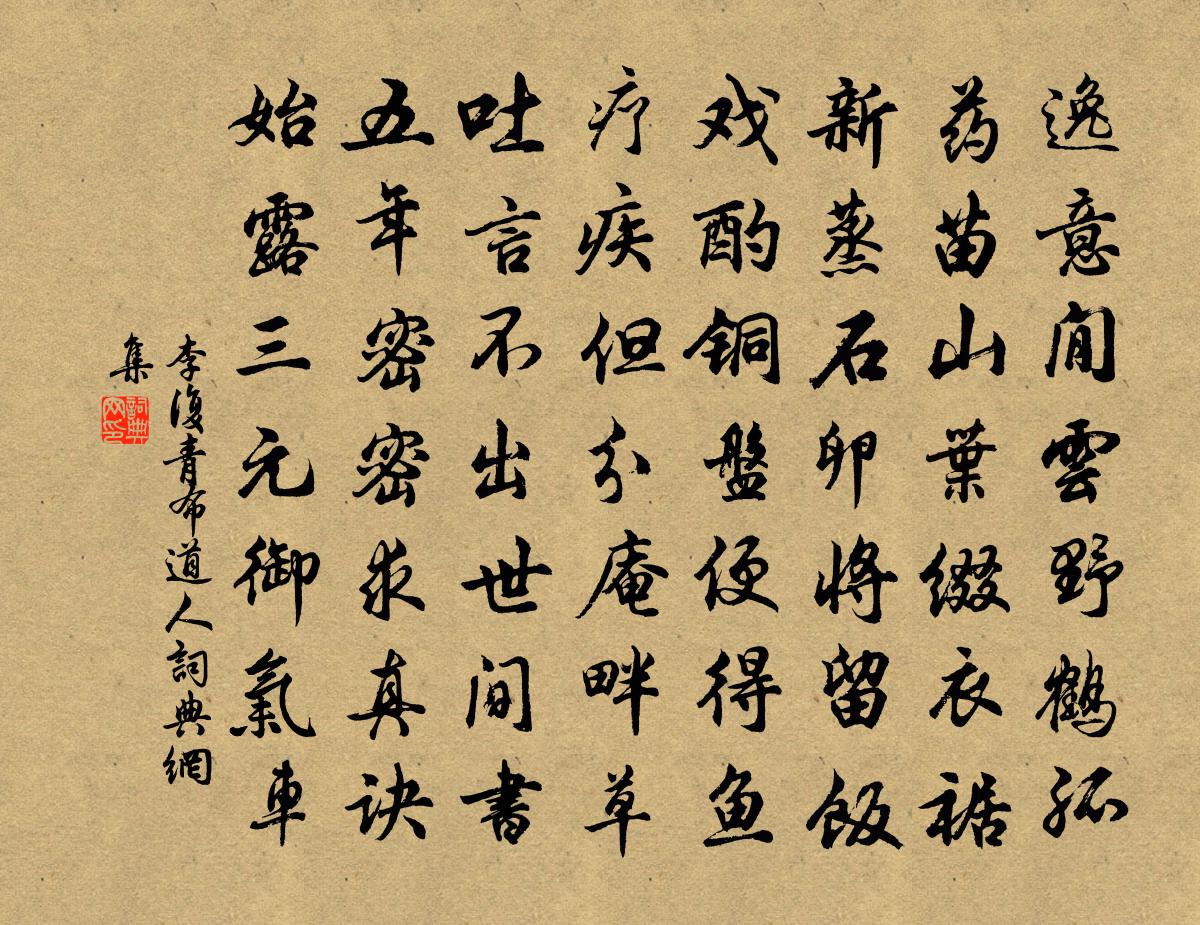 逸意闲雲野鹤孤
药苗山葉缀衣裾
新蒸石卵将留飯
戏酌铜盤便得鱼
疗疾但分庵畔草
吐言不出世间書
五年密密求真诀
始露三元御氣車
李復青布道人詞典網
集
詞典网印